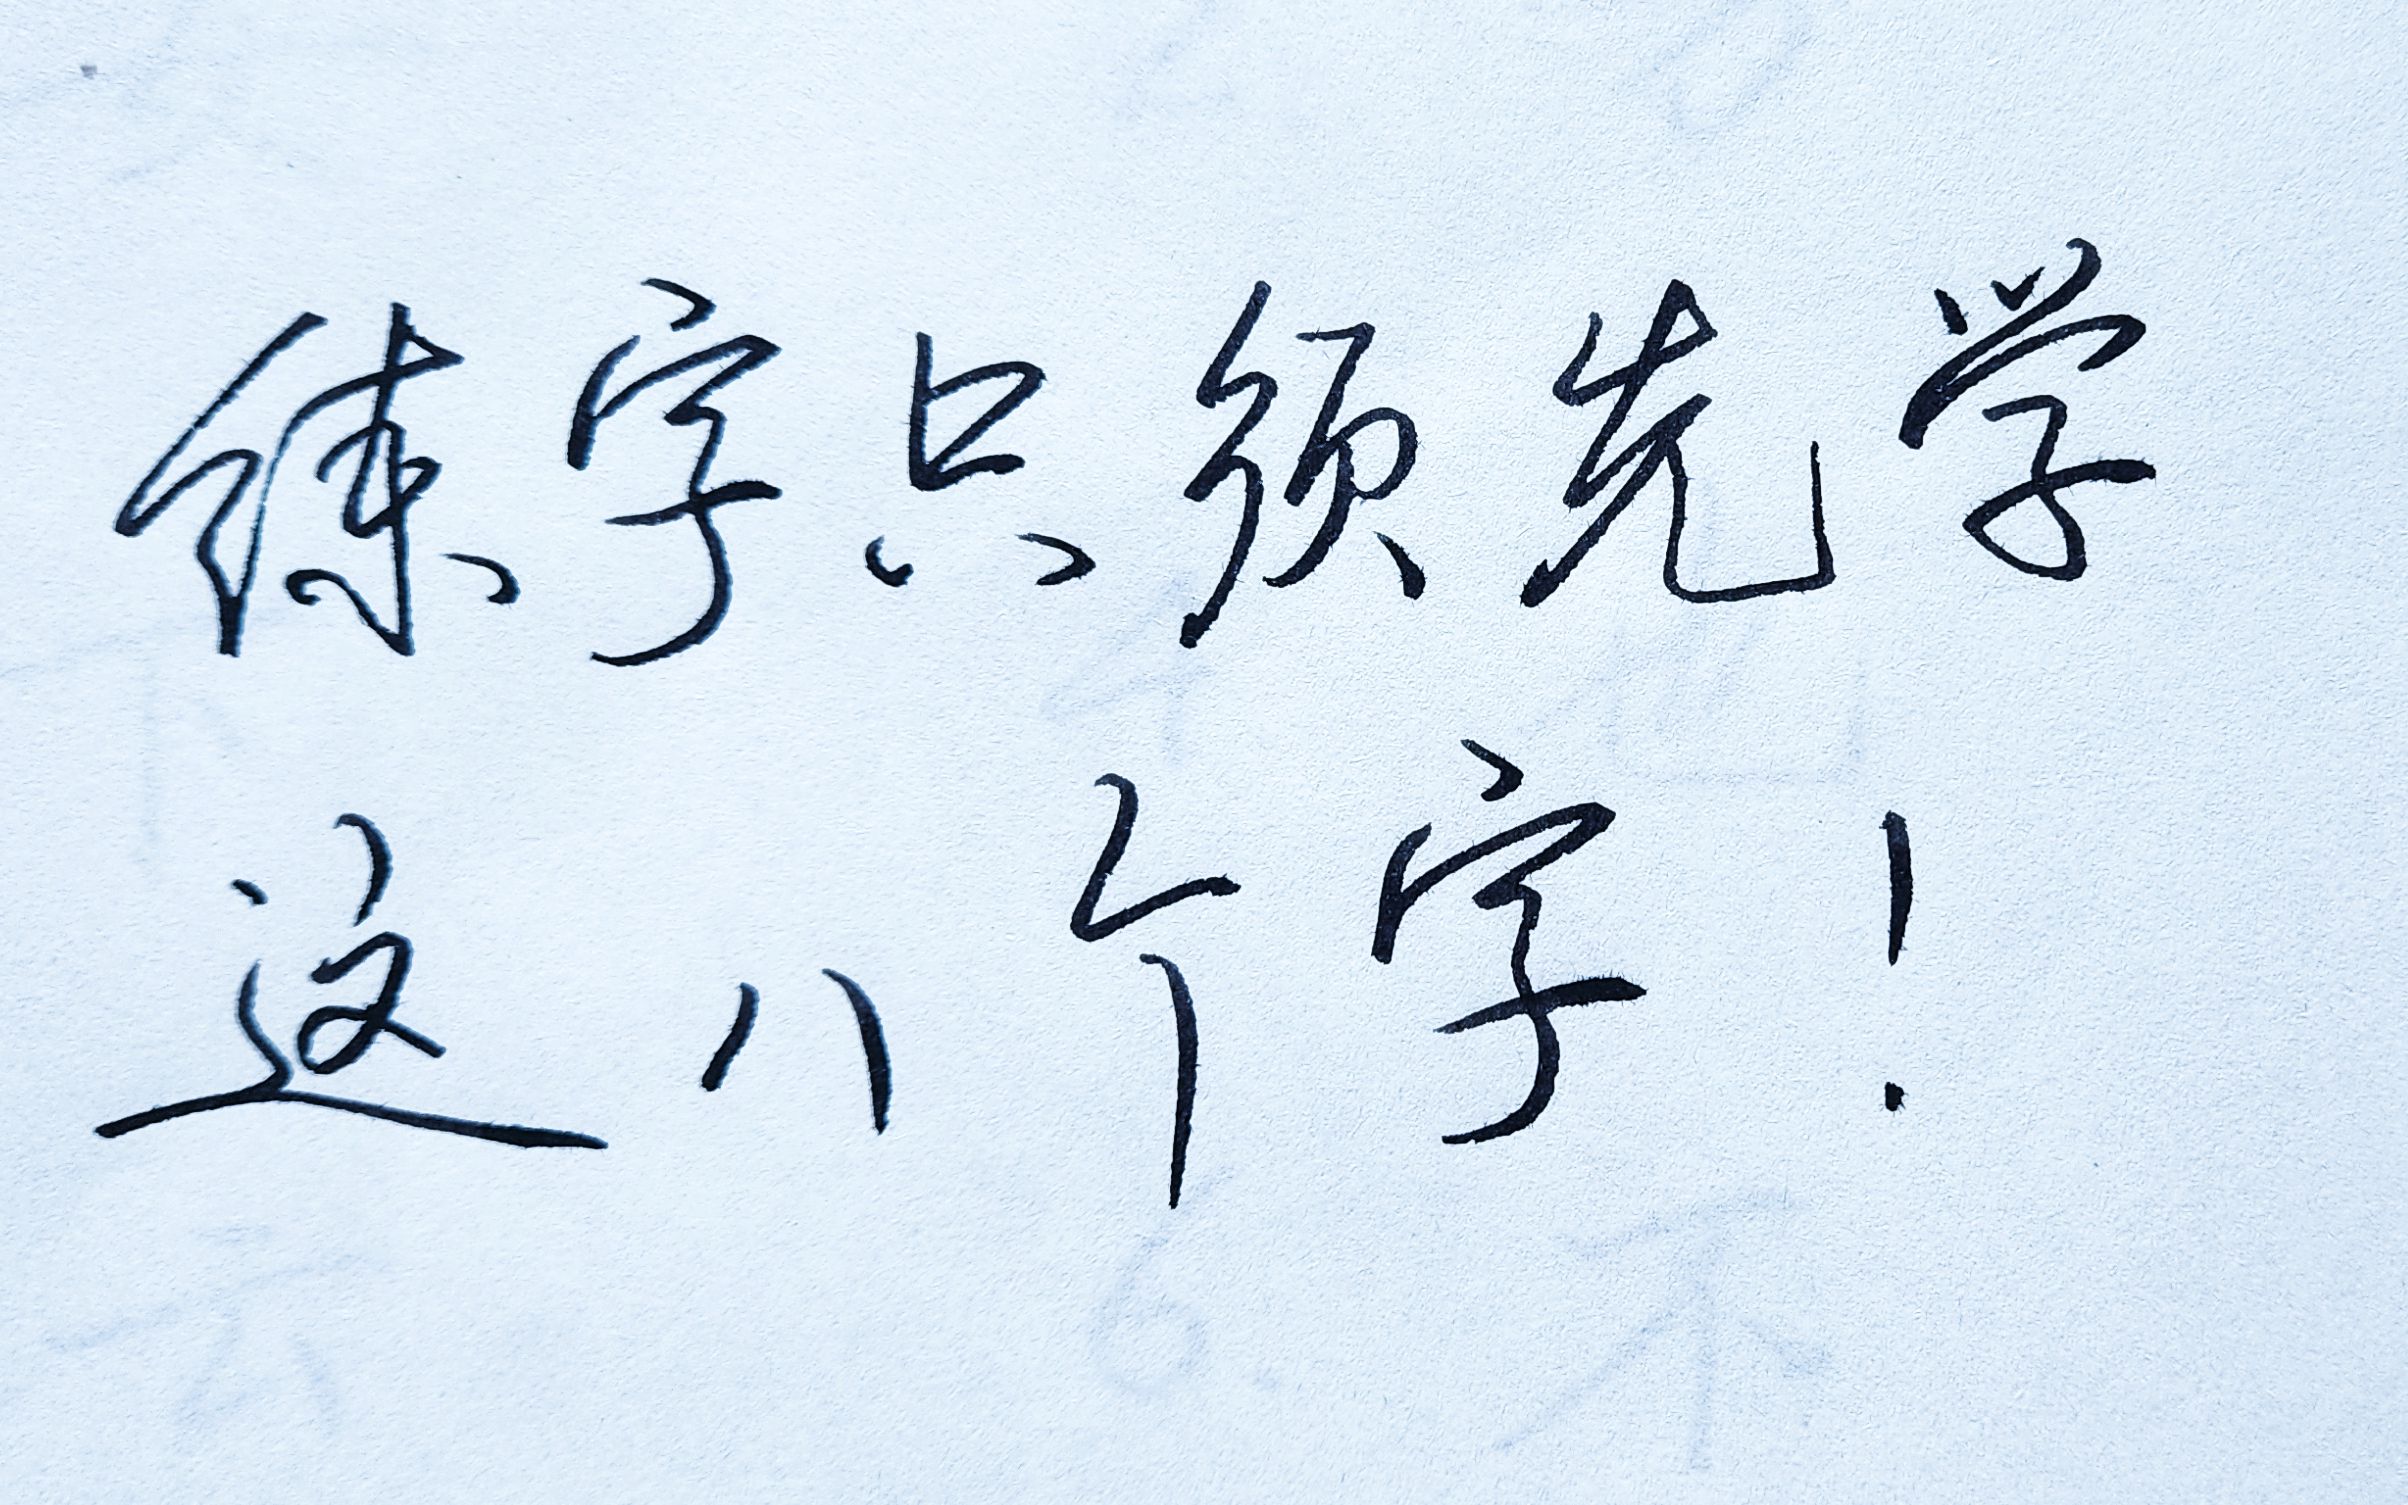 练字只须先学
这八个字！